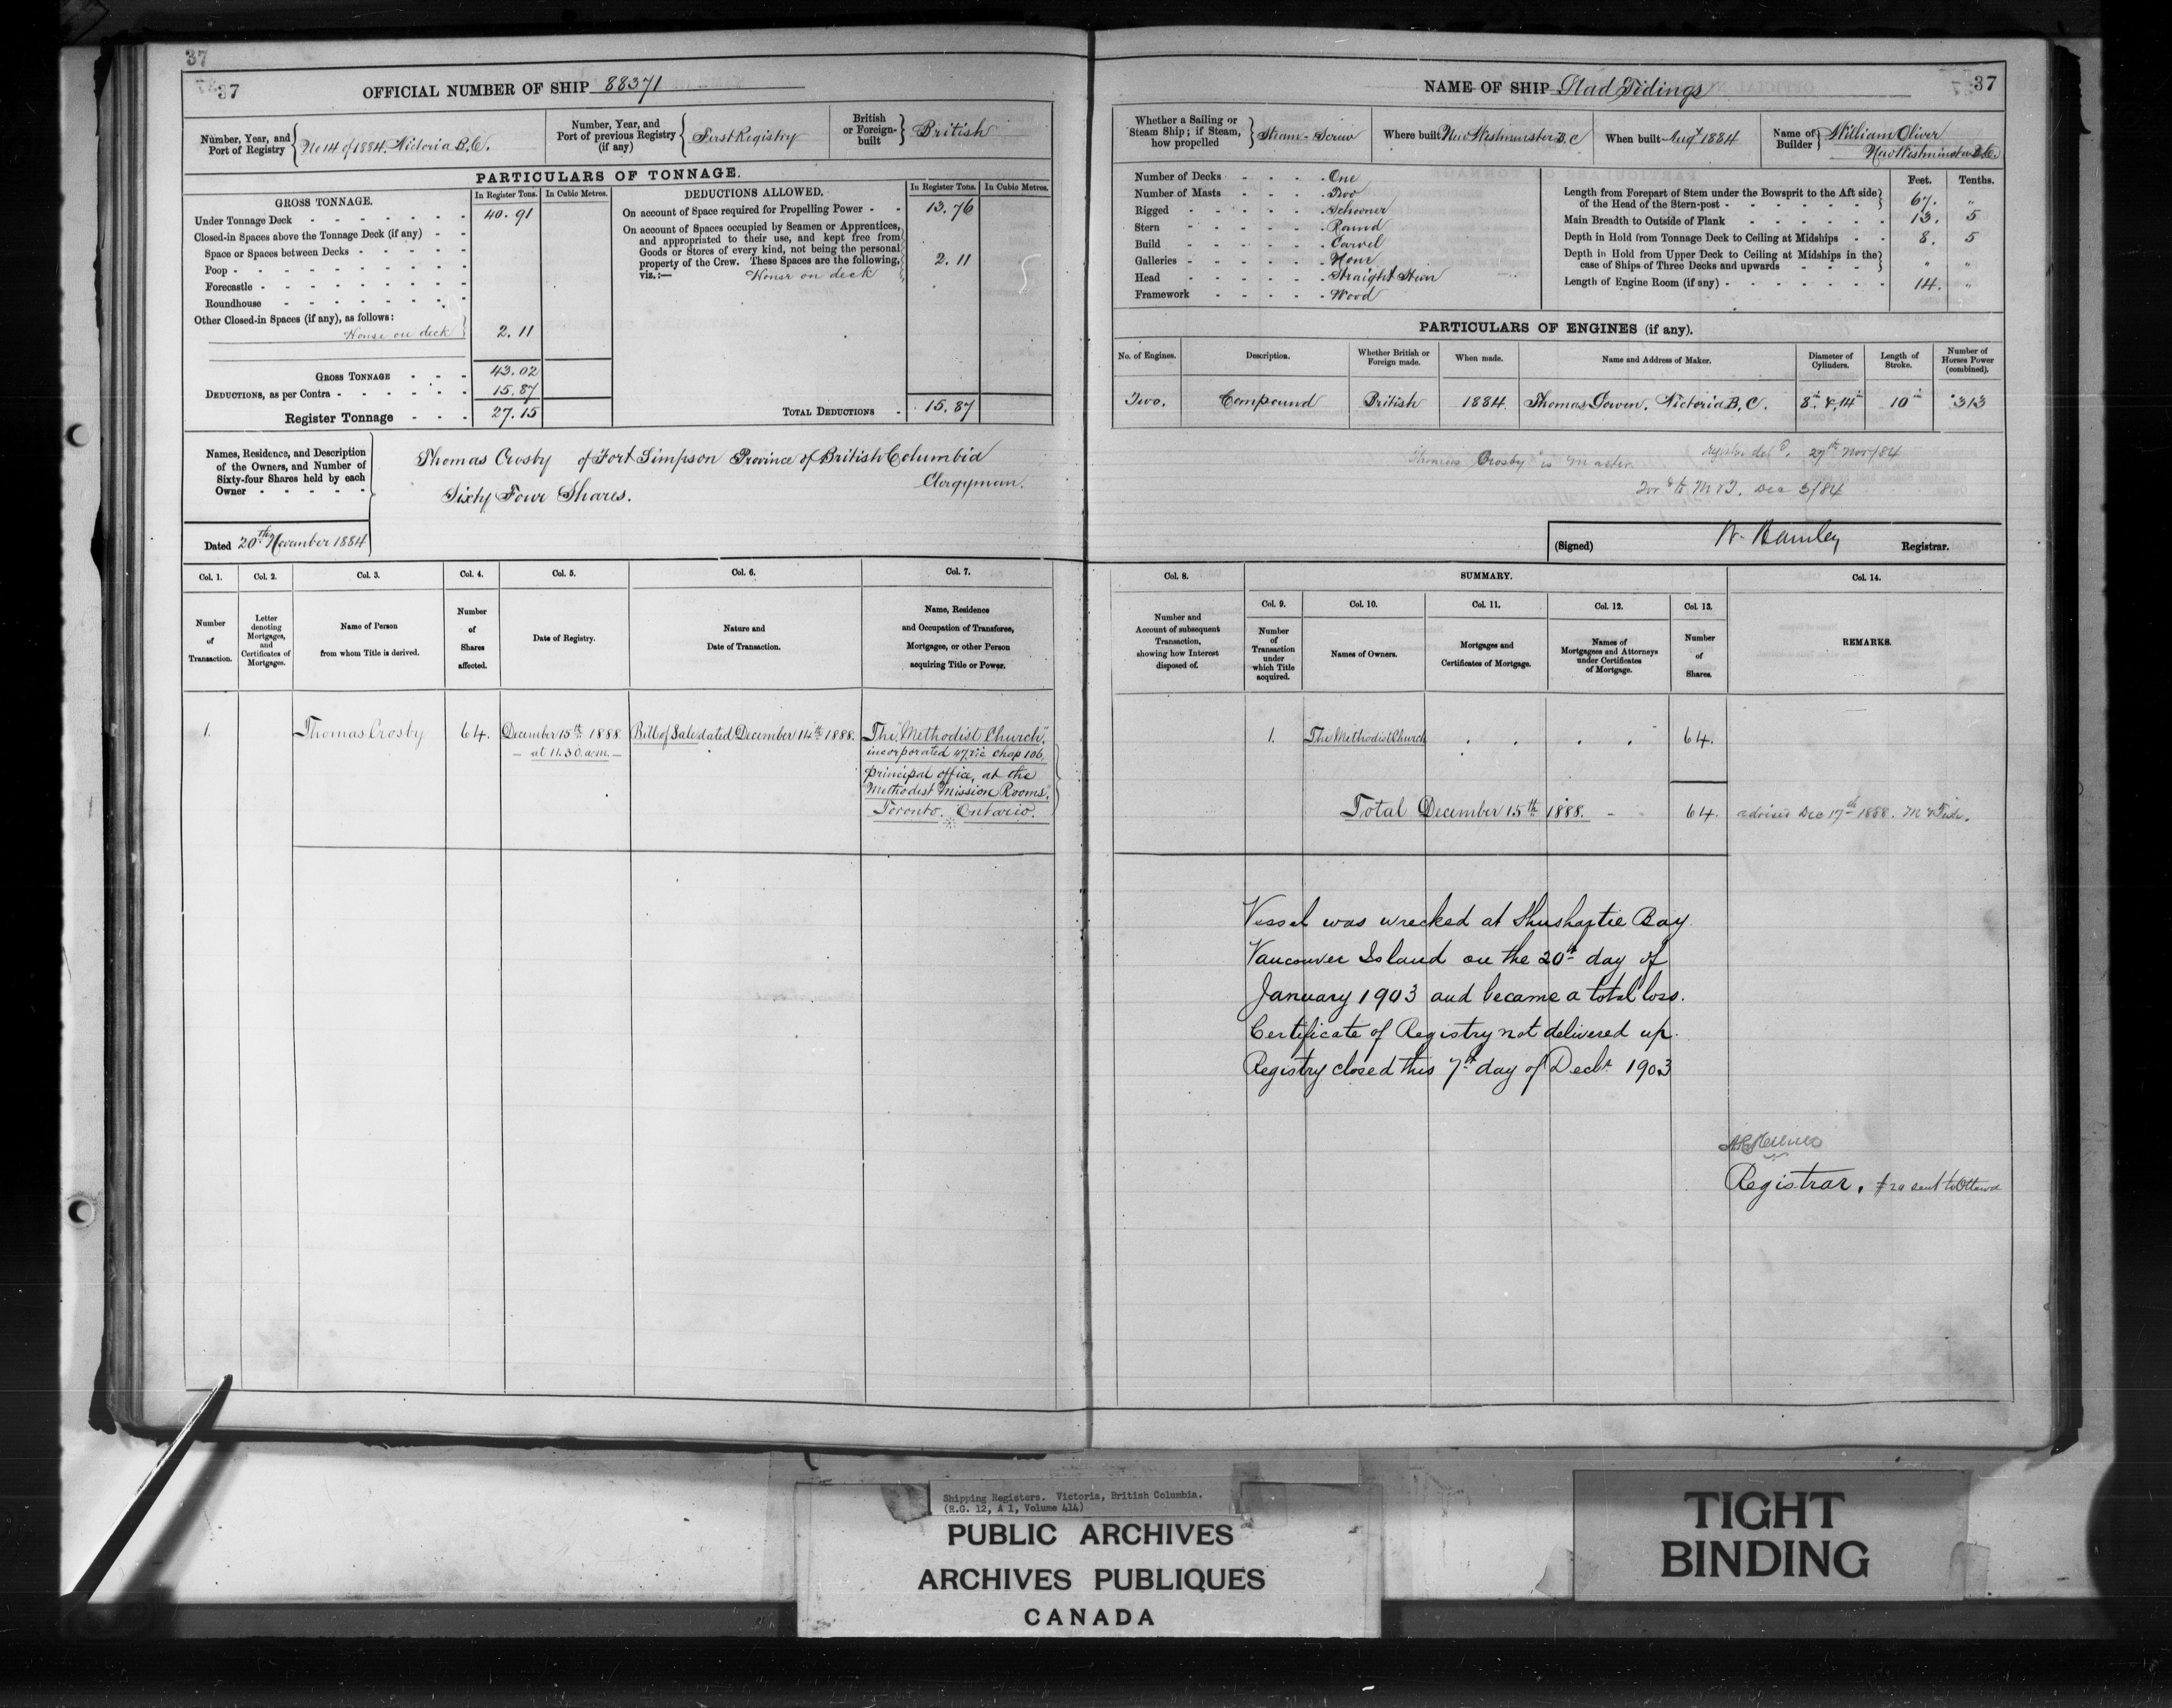 37
37
OFFICIAL NUMBER OF SHIP 88371
Number, Year, and Port of Registry No 14 of 1884. Victoria B.C.
Number, Year, and Port of previous Registry (if any) First Registry
British or Foreign-built British
PARTICULARS OF TONNAGE.
GROSS TONNAGE. In Register Tons. In Cubic Metres.
Under Tonnage Deck 40.91
Closed-in Spaces above the Tonnage Deck (if any)
Space or Spaces between Decks
Poop
Forecastle
Roundhouse
Other Closed-in Spaces (if any), as follows:
House on deck 2.11
GROSS TONNAGE 43.02
DEDUCTIONS, as per Contra 15.87
Register Tonnage 27.15
DEDUCTIONS ALLOWED. In Register Tons. In Cubic Metres.
On account of Space required for Propelling Power 13.76
On account of Spaces occupied by Seamen or Apprentices,
and appropriated to their use, and kept free from
Goods or Stores of every kind, not being the personal
property of the Crew. These Spaces are the following, 2.11
viz.:— House on deck
TOTAL DEDUCTIONS 15.87
Names, Residence, and Description
of the Owners, and Number of
Sixty-four Shares held by each
Owner
Thomas Crosby of Fort Simpson Province of British Columbia
Clergyman.
Sixty Four Shares.
Dated 20th November 1884
Col. 1. Col. 2. Col. 3. Col. 4. Col. 5. Col. 6. Col. 7.
Number of Transaction.
Letter denoting Mortgages, and Certificates of Mortgages.
Name of Person from whom Title is derived.
Number of Shares affected.
Date of Registry.
Nature and Date of Transaction.
Name, Residence and Occupation of Transferee, Mortgage, or other Person acquiring Title or Power.
1. Thomas Crosby 64. December 15th 1888 Bill of Sale dated December 14th 1888. The "Methodist Church",
at 11.30 a.m. incorporated 47 Vic Chap 106,
principal office, at the
"Methodist Mission Rooms",
Toronto. Ontario.
NAME OF SHIP Glad Tidings
37
Whether a Sailing or Steam Ship; if Steam, how propelled Steam - Screw
Where built New Westminster B.C
When built Augt 1884
Name of Builder William Oliver
New Westminster B.C.
Number of Decks One
Number of Masts Two
Rigged Schooner
Stern Round
Build Carvel
Galleries None
Head Straight Stem
Framework Wood
Feet. Tenths.
Length from Forepart of Stem under the Bowsprit to the Aft side
of the Head of the Stern-post 67. "
Main Breadth to Outside of Plank 13. 5
Depth in Hold from Tonnage Deck to Ceiling at Midships 8. 5
Depth in Hold from Upper Deck to Ceiling at Midships in the
case of Ships of Three Decks and upwards " "
Length of Engine Room (if any) 14. "
PARTICULARS OF ENGINES (if any).
No. of Engines. Description. Whether British or Foreign made. When made. Name and Address of Maker. Diameter of Cylinders. Length of Stroke. Number of Horses Power (combined).
Two. Compound British 1884. Thomas Gowen, Victoria B.C. 8in & 14in 10in 313
Thomas Crosby is Master. 27th Nov/84
Dec 3/84
(Signed) W. Hamley Registrar.
Col. 8. SUMMARY. Col. 14.
Col. 9. Col. 10. Col. 11. Col. 12. Col. 13.
Number and Account of subsequent Transaction, showing how Interest disposed of.
Number of Transaction under which Title acquired.
Names of Owners.
Mortgages and Certificates of Mortgage.
Names of Mortgagees and Attorneys under Certificates of Mortgage.
Number of Shares.
REMARKS.
1. The Methodist Church 64.
Total December 15th 1888. 64. advised Dec 17th 1888.
Vessel was wrecked at Shushartie Bay
Vancouver Island on the 20th day of
January 1903 and became a total loss.
Certificate of Registry not delivered up.
Registry closed this 7th day of Decbr 1903
Registrar. sent to Ottawa
Shipping Registers. Victoria, British Columbia.
(R.G. 12, A 1, Volume 414)
PUBLIC ARCHIVES
ARCHIVES PUBLIQUES
CANADA
TIGHT
BINDING